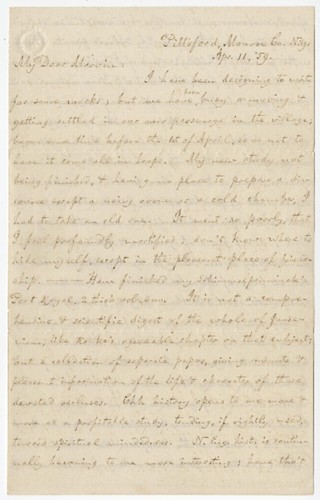 Pittsford, Monroe Co. N.Y.
Apr. 11. '59.
My Dear Marvin:
I have been designing to write
for some weeks; but we have been busy a moving &
getting settled in our new parsonage in the village,
began some time before the 1st of April, so as not to
have it come all in heaps. My new study not
being finished, & having no place to prepare a dis-
course except a dining room or a cold chamber, I
had to take an old one. It went so poorly, that
I feel profoundly mortified; don't know where to
hide myself, except in the pleasant place of friend-
ship. Have finished my
Port Royal, 2 thick volumes. It is not a compre-
hensive & scientific digest of the whole of Janse-
nism, like agreeable chapter on that subject;
but a collection of separate papers, giving minute &
pleasant information of the life & character of those
devoted recluses. Chh history opens to me more &
more as a profitable study, tending, if rightly used,
towards spiritual mindedness. N. Eng. hist. is contin-
ually becoming to me more interesting; have that